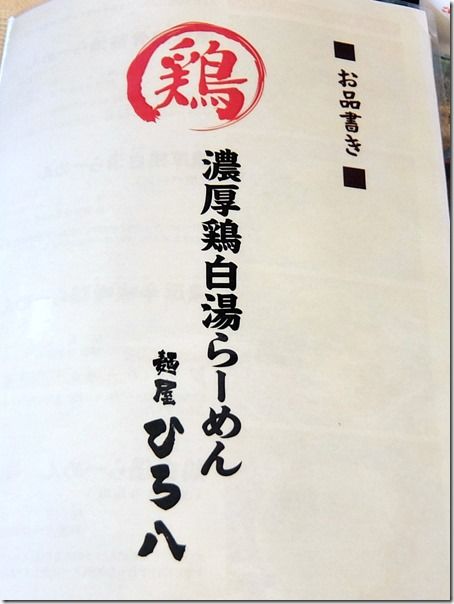 ■お品書き■
鶏
濃厚鶏白湯らーめん
麺屋
ひろ八